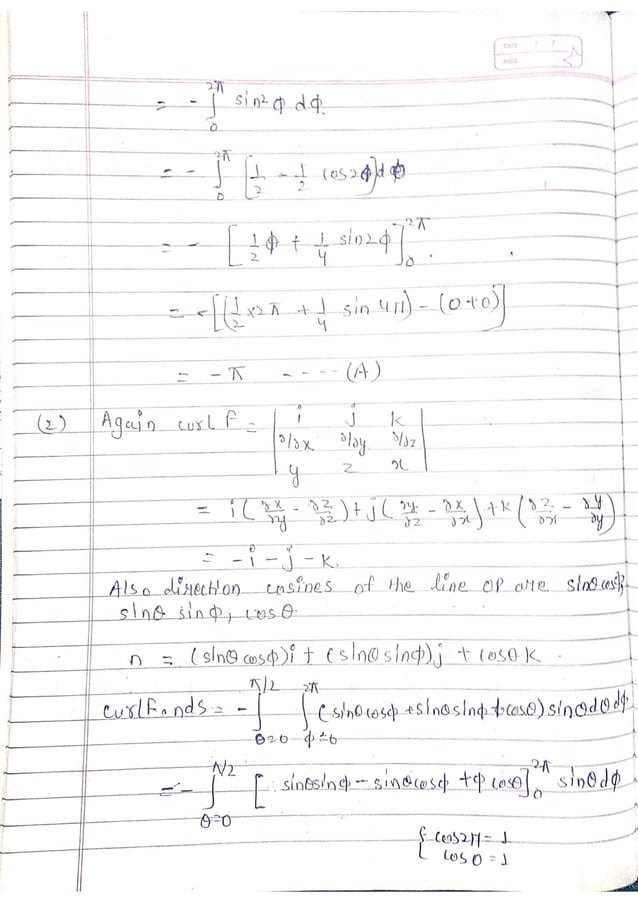 DATE / /
PAGE
= - ∫₀^{2π} sin²φ dφ.
= - ∫₀^{2π} [1/2 - 1/2 cos2φ] dφ
= - [1/2 φ + 1/4 sin2φ]₀^{2π}.
= -[(1/2 × 2π + 1/4 sin 4π) - (0+0)]
= -π ----(A)
(2) Again curl F = | i j k |
| ∂/∂x ∂/∂y ∂/∂z |
| y z x |
= i(∂x/∂y - ∂z/∂z) + j(∂y/∂z - ∂x/∂x) + k(∂z/∂x - ∂y/∂y)
= -i - j - k.
Also direction cosines of the line OP are sinθcosφ,
sinθ sinφ, cosθ.
n = (sinθcosφ)i + (sinθsinφ)j + cosθ k.
curlF.nds = - ∫_{θ=0}^{π/2} ∫_{φ=0}^{2π} (sinθcosφ + sinθsinφ + cosθ) sinθdθdφ
= - ∫_{θ=0}^{π/2} [sinθsinφ - sinθcosφ + φ cosθ]₀^{2π} sinθdφ
{ cos2π = 1
cos 0 = 1